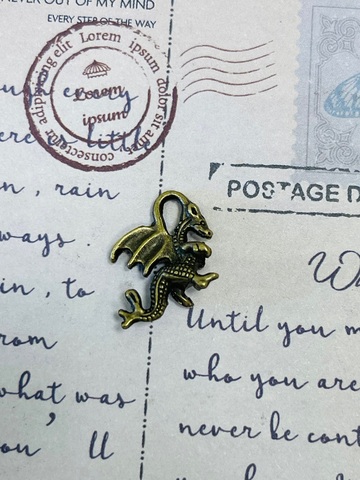 EVER OUT OF MY MIND
EVERY STEP OF THE WAY
adipiscing elit Lorem ipsum dolor sit amet consectetur
Lorem
ipsum
little
POSTAGE D
n , rain
ways .
in , to
rom
what was
ou ' ll
Until you m
who you are
never be cont